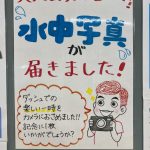 水中写真
が
届きました！
ダッシュでの
楽しい一時を
カメラにおさめました!!
記念に1枚
いかがでしょうか？